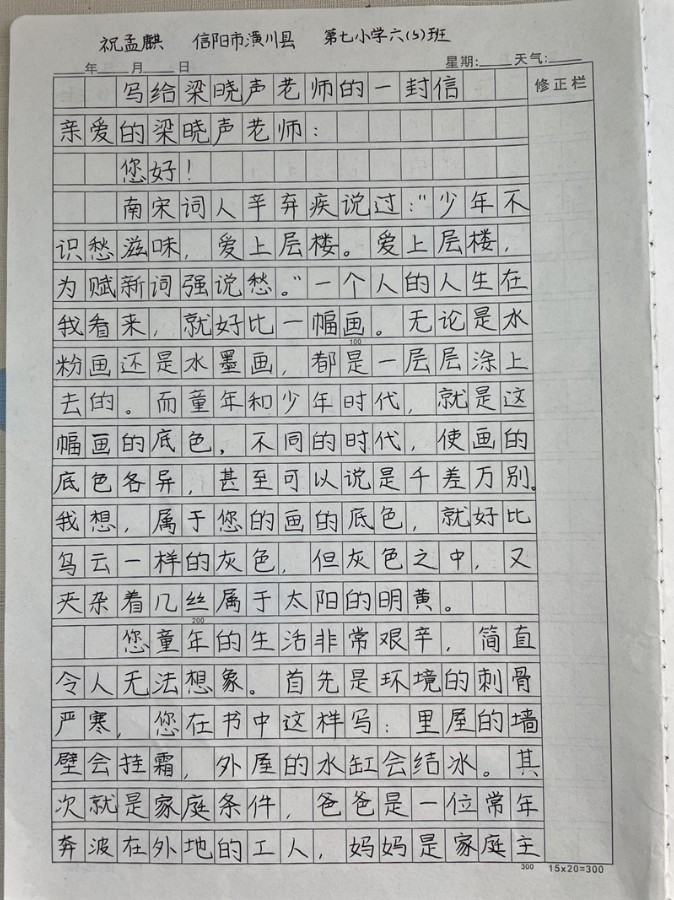 祝孟麒 信阳市潢川县 第七小学六(5)班
年 月 日 星期: 天气:
写给梁晓声老师的一封信 修正栏
亲爱的梁晓声老师:
您好!
南宋词人辛弃疾说过:"少年不
识愁滋味,爱上层楼。爱上层楼,
为赋新词强说愁。"一个人的人生在
我看来,就好比一幅画。无论是水
100
粉画还是水墨画,都是一层层涂上
去的。而童年和少年时代,就是这
幅画的底色,不同的时代,使画的
底色各异,甚至可以说是千差万别。
我想,属于您的画的底色,就好比
乌云一样的灰色,但灰色之中,又
夹杂着几丝属于太阳的明黄。
200
您童年的生活非常艰辛,简直
令人无法想象。首先是环境的刺骨
严寒,您在书中这样写:里屋的墙
壁会挂霜,外屋的水缸会结冰。其
次就是家庭条件,爸爸是一位常年
奔波在外地的工人,妈妈是家庭主
300 15×20=300